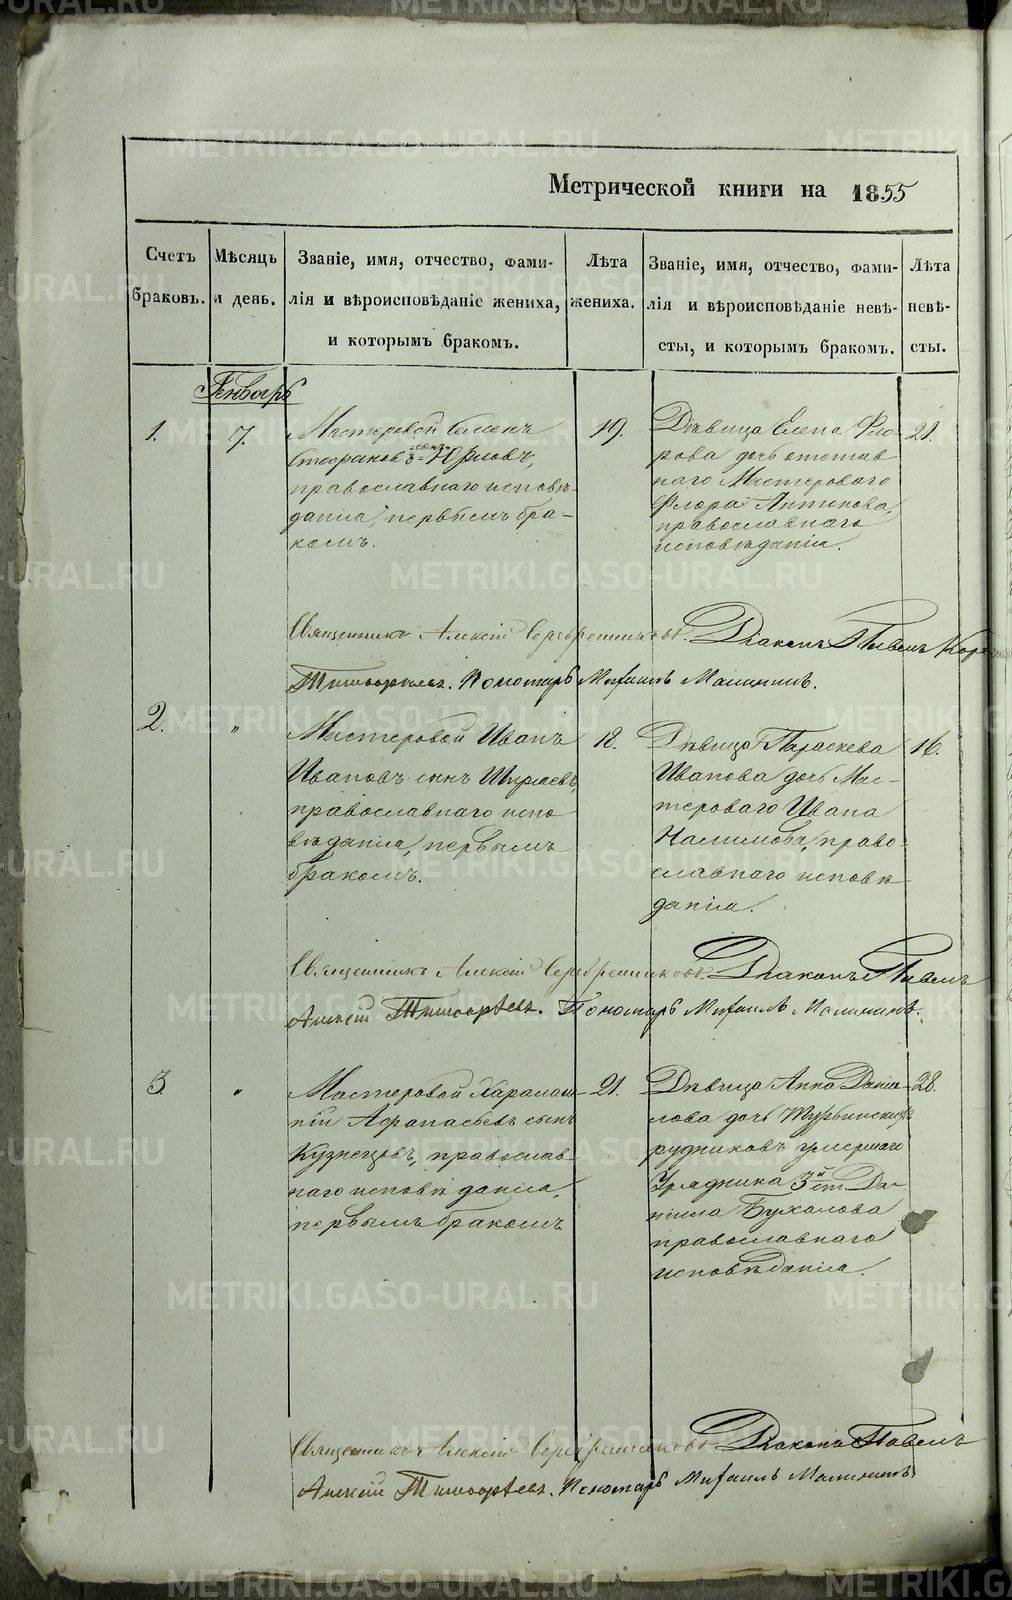 Метрической книги на 1855
Счетъ браковъ.
Мѣсяцъ и день.
Званіе, имя, отчество, фами-
лія и вѣроисповѣданіе жениха,
и которымъ бракомъ.
Лѣта жениха.
Званіе, имя, отчество, фами-
лія и вѣроисповѣданіе невѣ-
сты, и которымъ бракомъ.
Лѣта невѣ-
сты.
Генварь
1.
7.
Мастеровой Семенъ
Стефановъ сынъ Юрловъ,
православнаго исповѣ-
данія, первымъ бра-
комъ.
19.
Дѣвица Елена Фло-
рова дочь отстав
наго Мастероваго
Флора Антипова,
православнаго
исповѣданія.
21.
Священникъ Алексій Серебренниковъ. Діаконъ Павелъ
Тимофеевъ. Пономарь Михаилъ Малининъ.
2.
"
Мастеровой Иванъ
Ивановъ сынъ
православнаго испо
вѣданія, первымъ
бракомъ.
18.
Дѣвица Параскева
Иванова дочь Мас-
тероваго Ивана
Налимова, право-
славнаго исповѣ
данія.
16.
Священникъ Алексій Серебренниковъ. Діаконъ Павелъ
Алексій Тимофѣевъ. Пономарь Михаилъ Малининъ.
3.
"
Мастеровой Харалам
пій Афанасьевъ сынъ
Кузнецовъ, православ
наго исповѣданія,
первымъ бракомъ
21.
Дѣвица Анна Дані-
лова дочь Турьинскихъ
рудниковъ умершаго
Урядника 3й ст Да-
ниила Бухалова
православнаго
исповѣданія.
28.
Священникъ Алексій Серебренниковъ. Діаконъ Павелъ
Алексій Тимофѣевъ. Пономарь Михаилъ Малининъ
METRIKI.GASO-URAL.RU